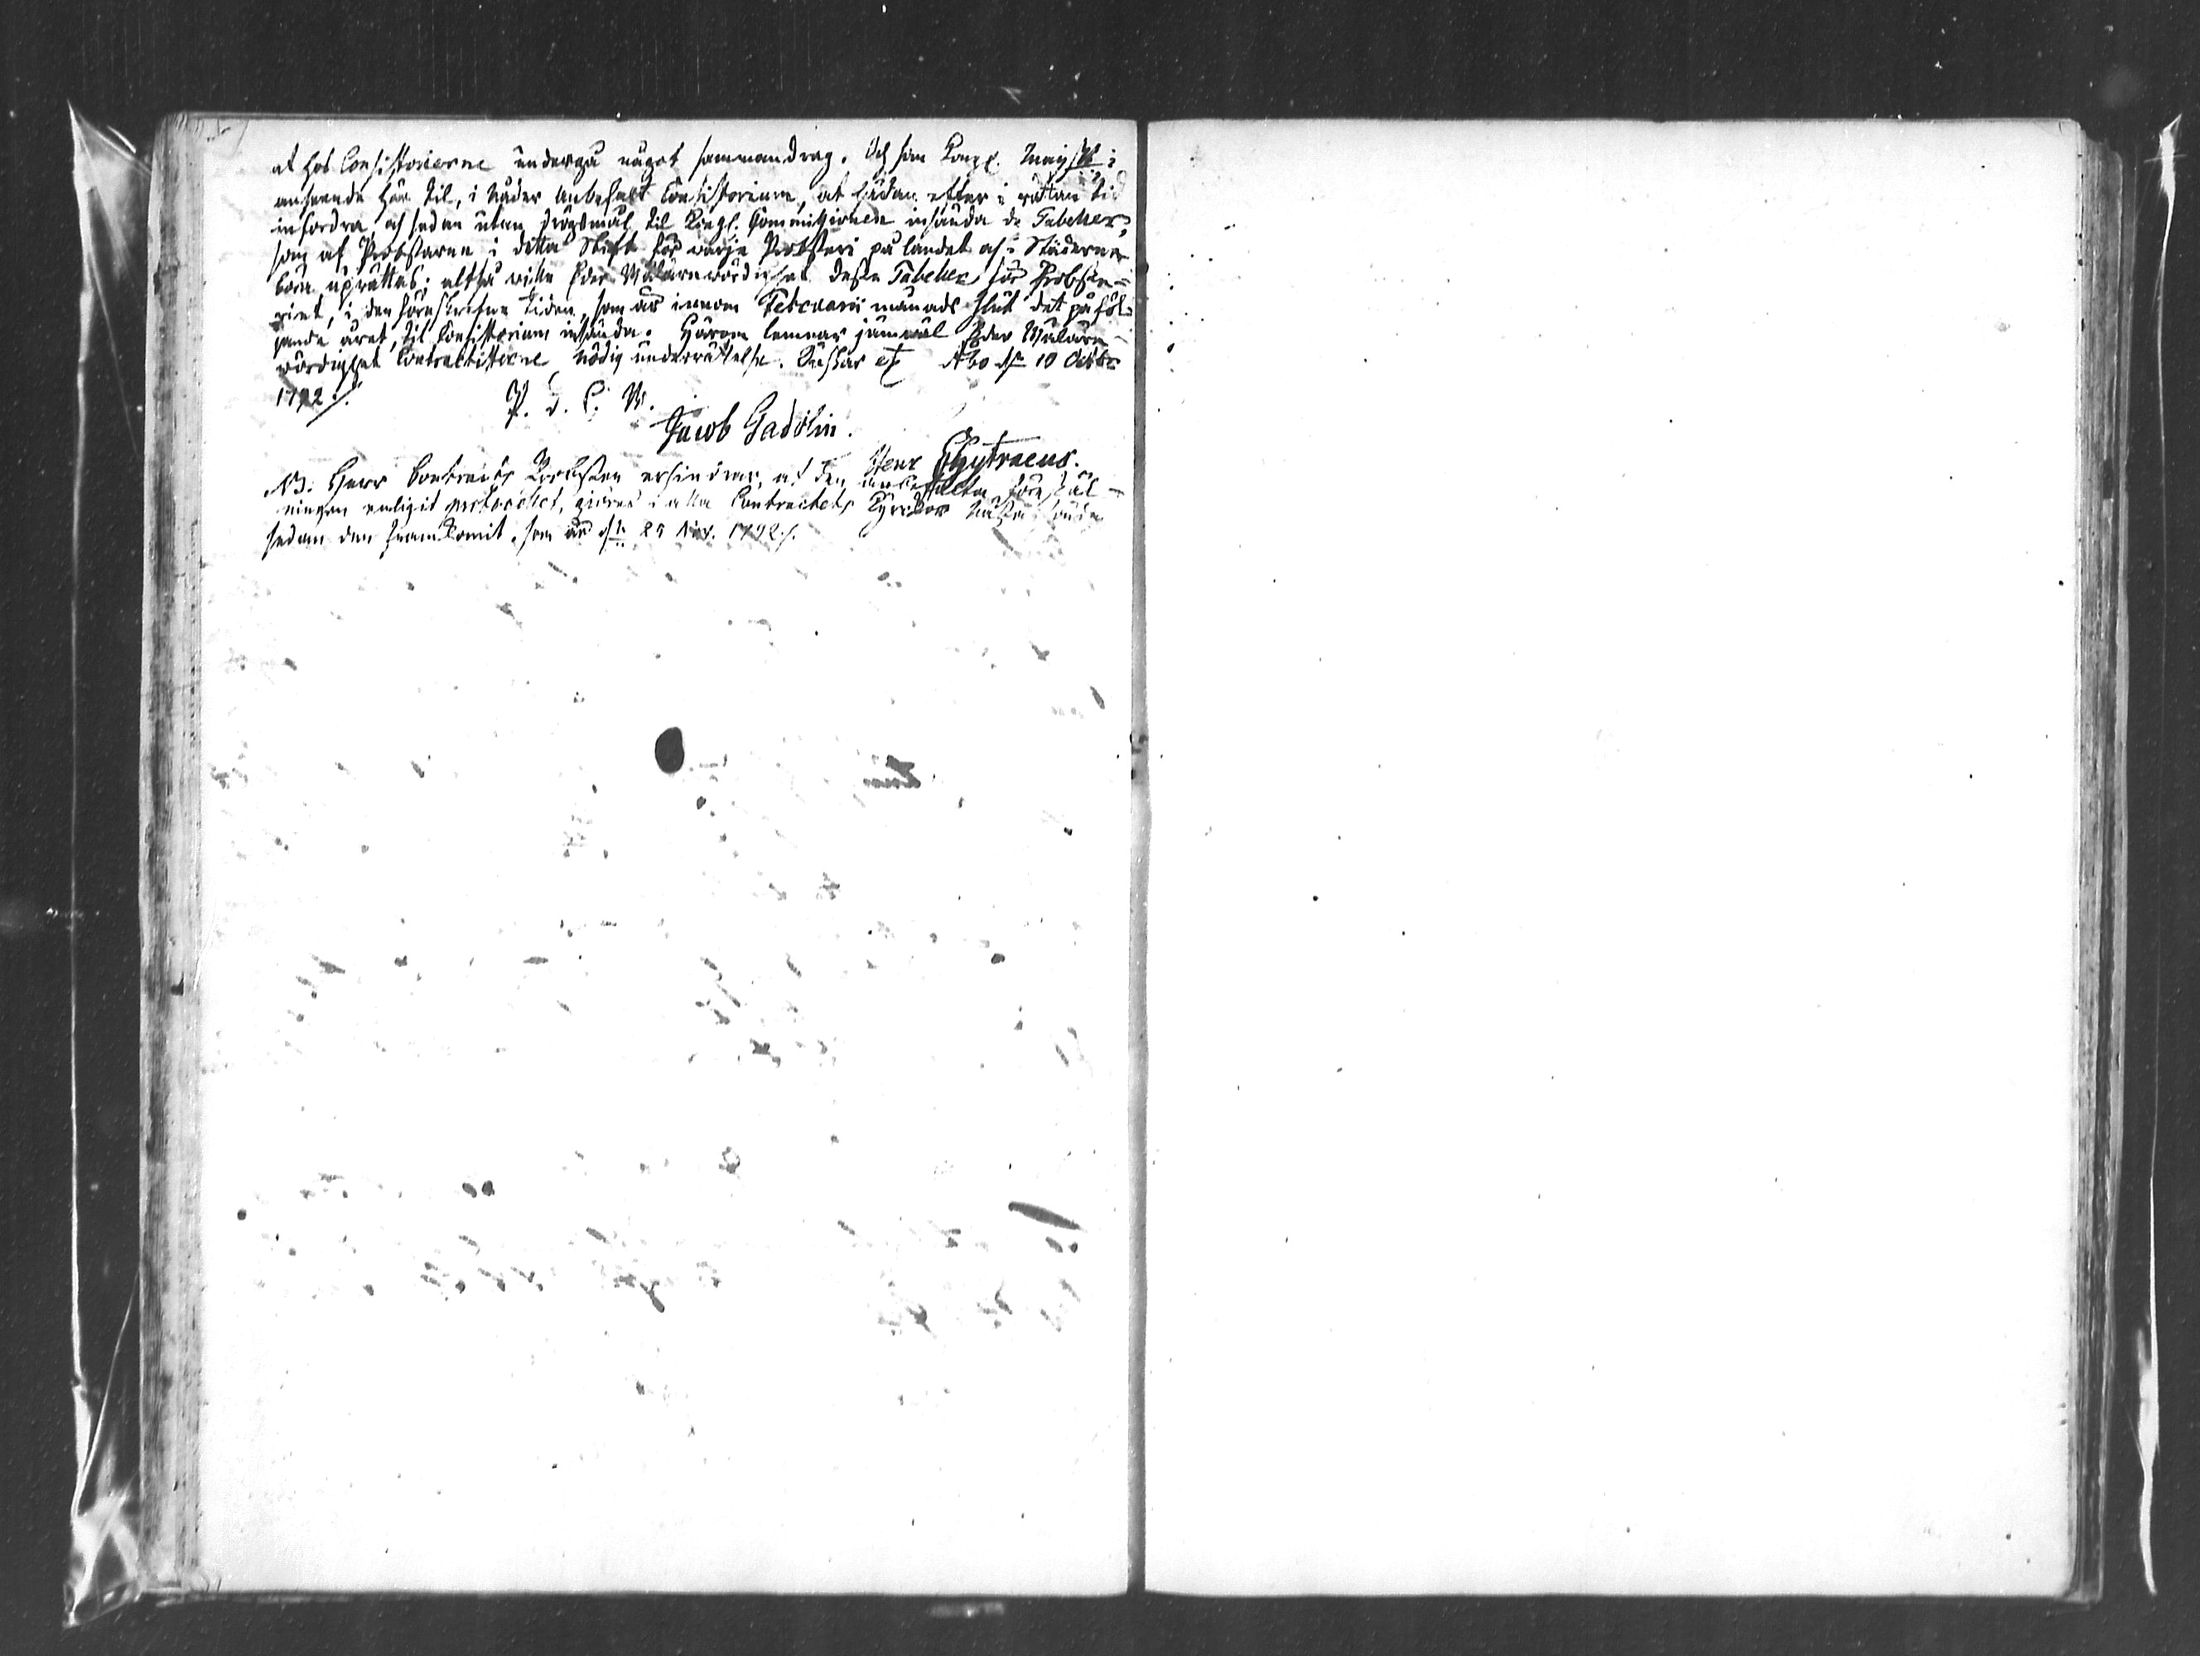 at hos Consistorierne undergå något sammandrag. Och som Kongl. Maij:st i
anseende här til, i Nåder anbefalt Consistorium, at sådan efter i rättan tid
infordra, och sedan utan drögsmål til Kongl. Commissionen insända de Tabeller,
som af Probstarne i detta Stift för warje Probsteri på landet och i Städerne
böra uprättas; altså wille Eder Wälärewördighet desse Tabeller för Probste-
riet, i den föreskrefne tiden, som är innom Februarii månads slut det påföl-
jande året, til Consistorium insända. Härom lemnar jämwäl Eder Wäläre-
wördighet Contractisterne nödig underrättelse. Åbo d. 10 Octobr
1792./.
P. d. C. W.
Jacob Gadolin.
Henr Chytraeus.
NB. Herr Contracts Probsten erhindrar, at den anbefalta föreställ-
ningen enligit protocollet, giöres i alla Contractets Kyrckor nästa
sedan den framkomit, som är d. 25 Nov. 1792./.